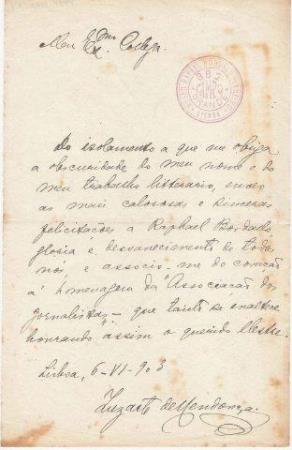 Meu Ex.mo Collega.
Do isolamento a que me obriga
a obscuridade do meu nome e do
meu trabalho litterario, envio
as mais calorosas e sinceras
felicitações a Raphael Bordallo
gloria e desvanecimento de todos
nós, e associo-me de coração
á homenagem da Associação dos
jornalistas, que tanto se enaltece
honrando assim o querido Mestre.
Lisboa, 6-VI-903
Luzarte de Mendonça.